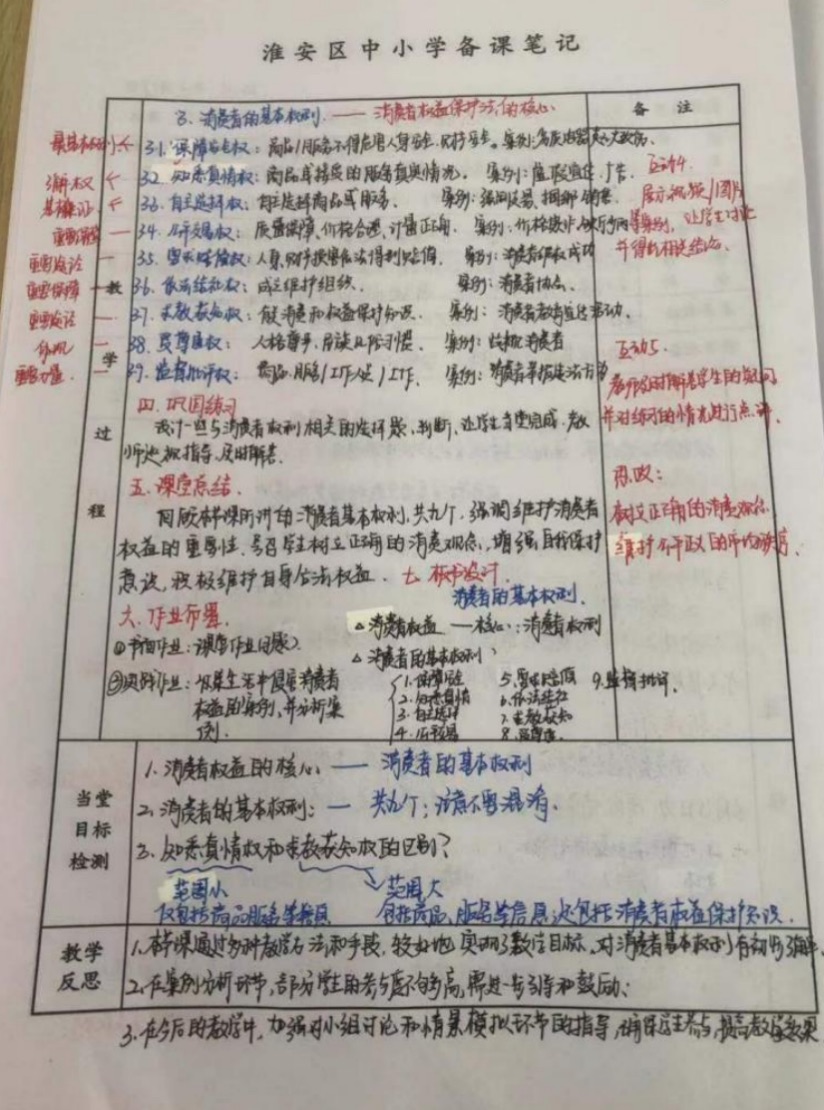 淮安区中小学备课笔记
备注
3. 消费者的基本权利 —— 消费者权益保护法的核心
最基本权利 31. 保障安全权：商品/服务不得危害人身安全、财产安全。案例：
了解权 32. 知悉真情权：商品或接受的服务真实情况。 案例：虚假宣传、广告。 互动4.
基本保证 33. 自主选择权：自主选择商品或服务。 案例：强制交易、捆绑销售 展示视频/图片
34. 公平交易权：质量保障、价格合理、计量正确。 案例：价格欺诈、 等案例，让学生讨论
重要途径 35. 要求赔偿权：人身、财产损害依法得到赔偿。 案例：消费者维权成功 并得出相关结论。
重要保障 教 36. 依法结社权：成立维护组织。 案例：消费者协会。
重要途径 37. 求教获知权：有关消费和权益保护知识。 案例：消费者教育宣传活动。
学 38. 受尊重权：人格尊重、民族风俗习惯。 案例：歧视消费者 互动5.
重要力量 39. 监督批评权：商品、服务/工作人员/工作。 案例：消费者举报违法行为
教师及时解答学生的疑问
四. 巩固练习 并对练习的情况进行点评.
过 设计一些与消费者权利相关的选择题、判断，让学生自主完成，教
师巡视指导，及时解答.
五. 课堂总结. 思政：
程 回顾本节课所讲的消费者基本权利，共九个，强调维护消费者 树立正确的消费观念，
权益的重要性，号召学生树立正确的消费观念，增强自我保护 维护公平正义的市场秩序.
意识，积极维护自身合法权益. 七. 板书设计.
消费者的基本权利.
六. 作业布置. △消费者权益 —核心：消费者权利
①书面作业：课堂作业(问题). △消费者的基本权利：
②实践作业：收集生活中侵害消费者 1. 保障安全 5. 要求赔偿 9. 监督批评.
权益的案例，并分析案 2. 知悉真情 6. 依法结社
例. 3. 自主选择 7. 求教获知
4. 公平交易 8. 受尊重
当堂目标检测
1. 消费者权益的核心 —— 消费者的基本权利
2. 消费者的基本权利：— 共九个；注意不要混淆.
3. 知悉真情权和求教获知权的区别？
范围小 范围大
仅包括商品服务等信息 包括商品、服务等信息，还包括消费者权益保护知识.
教学反思
1. 本节课通过多种教学方法和手段，较好地实现了教学目标，对消费者基本权利有初步了解.
2. 在案例分析环节，部分学生的参与度不够高，需进一步引导和鼓励；
3. 在今后的教学中，加强对小组讨论和情景模拟环节的指导，确保学生参与，提高教学效果